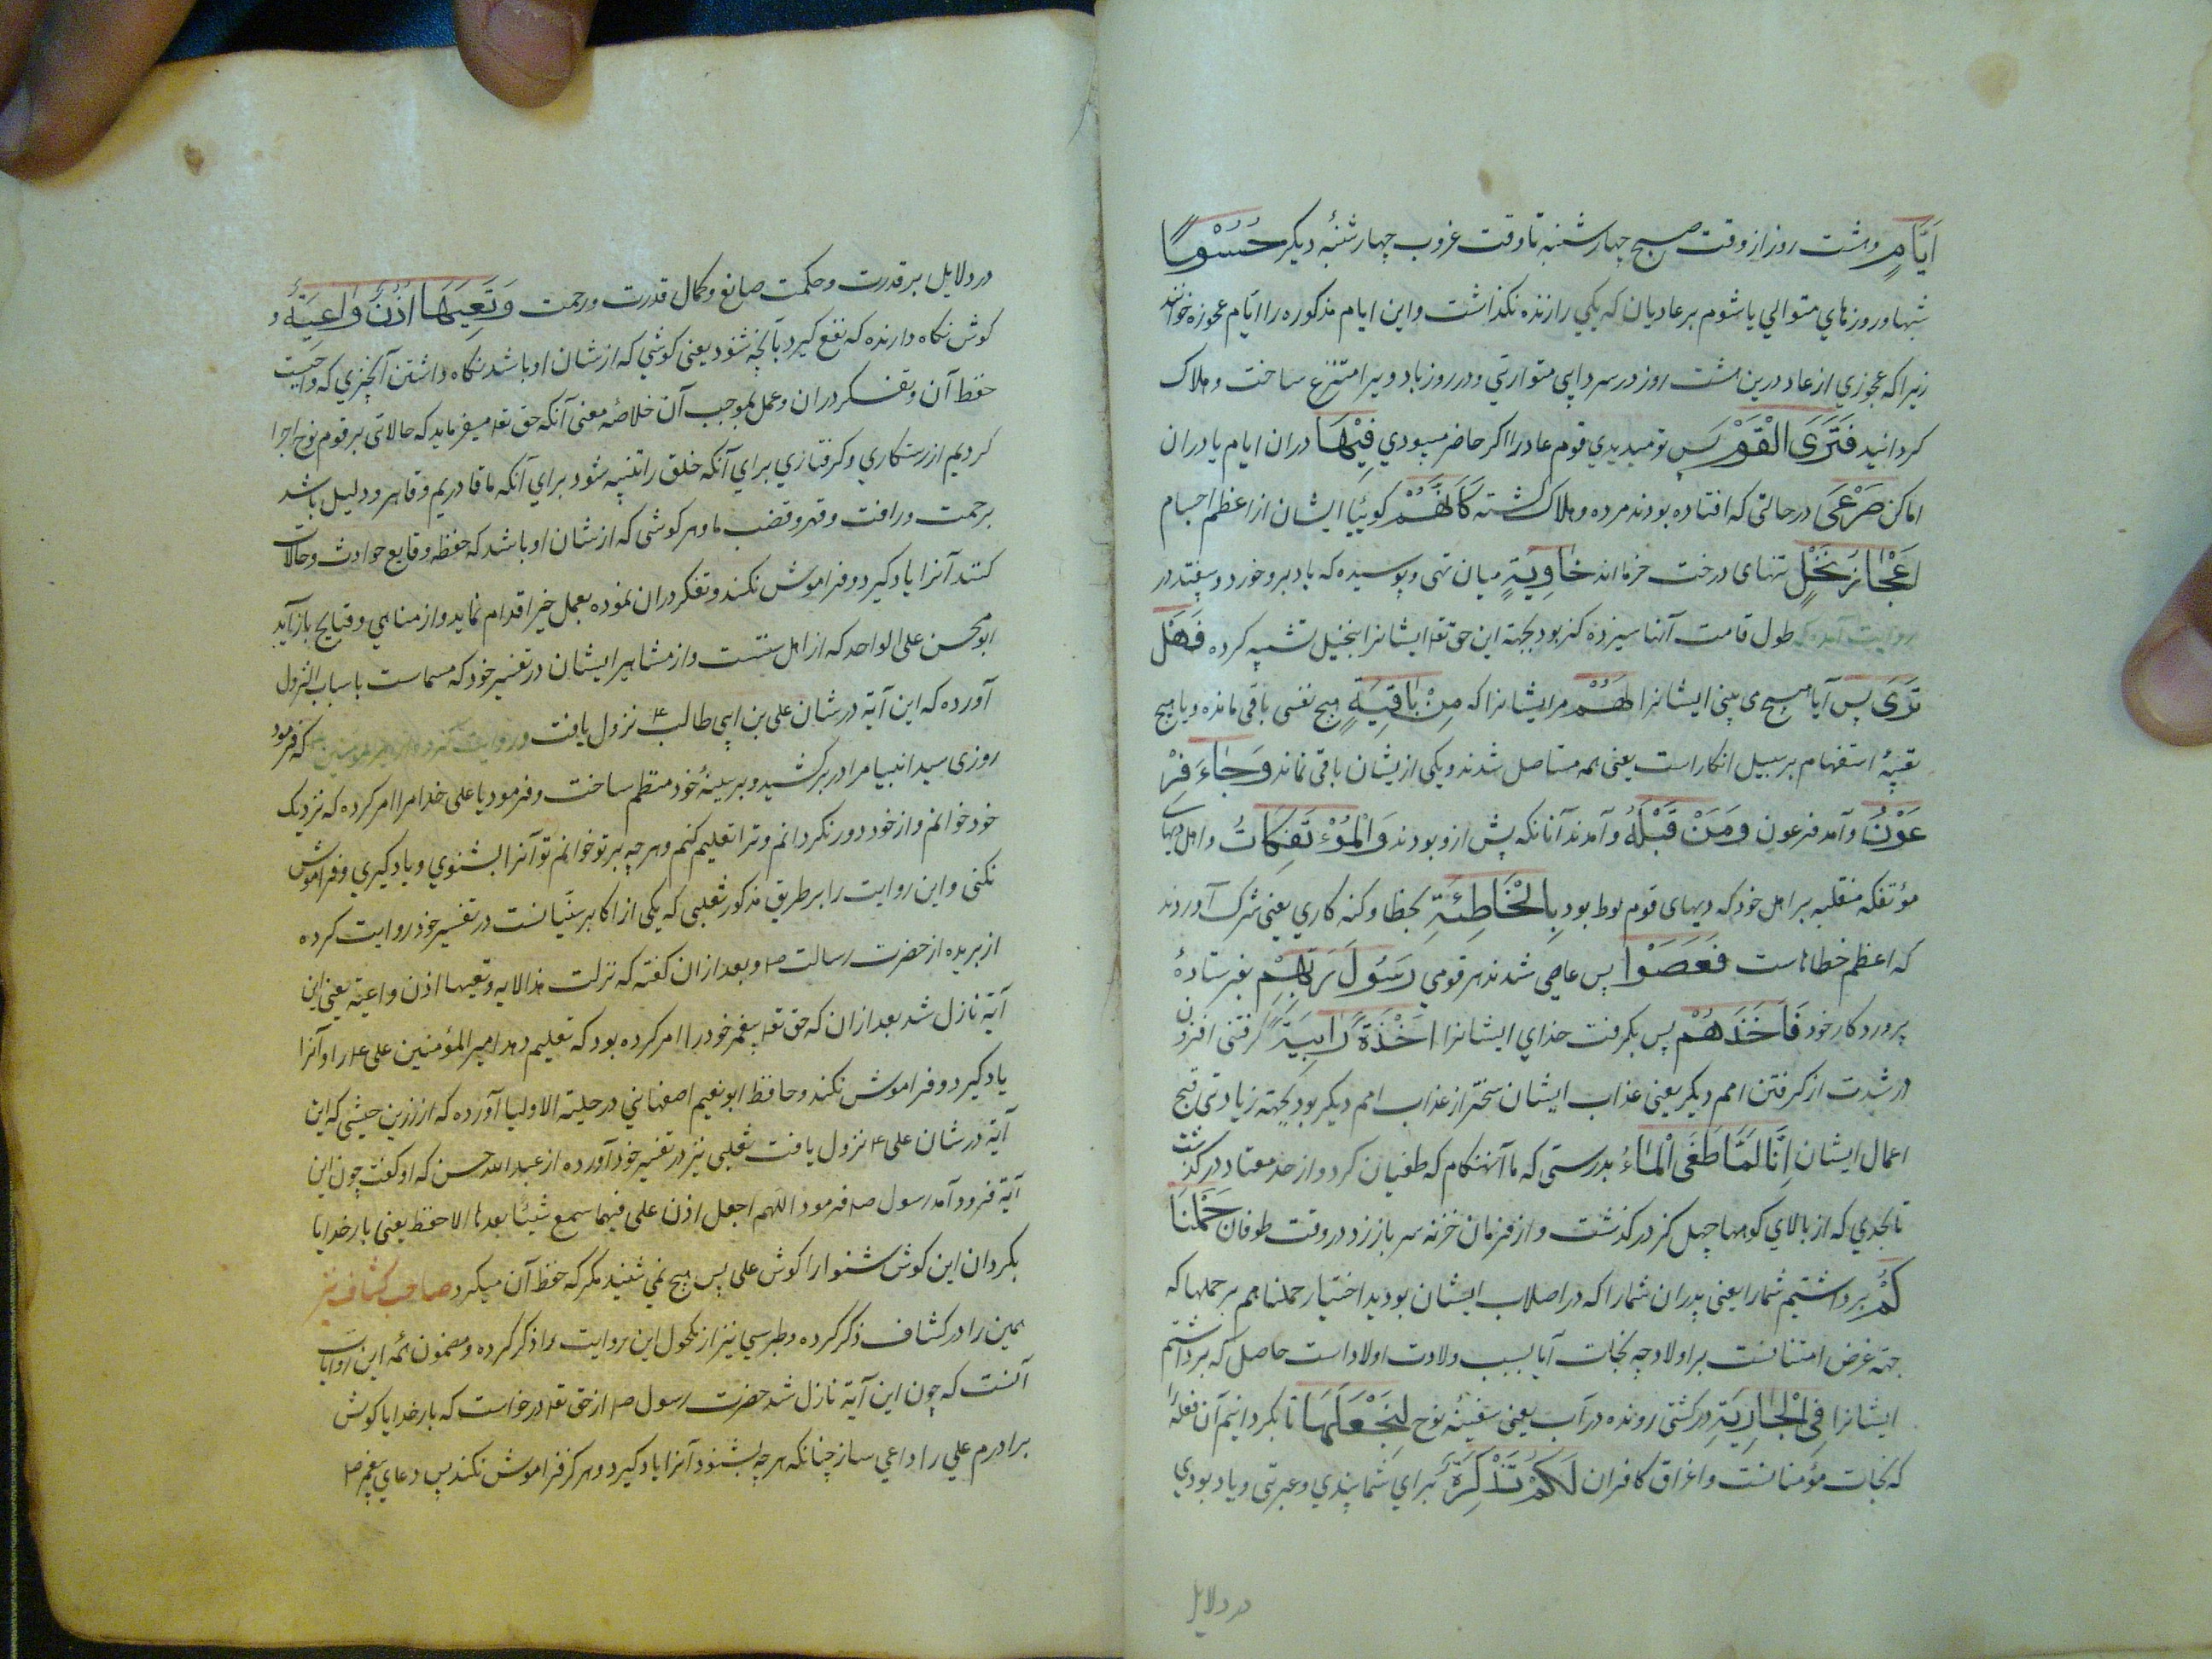 اَیَّامٍ وهشت روز از وقت صبح چهارشنبه تا وقت غروب چهارشنبهٔ دیکر حُسُوْمًا
شبها وروزهای متوالي یا شوم بر عادیان که یکي را زنده نکذاشت واین ایام مذکوره را ایّام عجوزه خوانند
زیرا که عجوزي از عاد درین هشت روز در سردابي متواري ودر روز باد ویرا منتزع ساخت وهلاک
کردانید فَتَرَی الْقَوْمَ پس تو میدیدي قوم عاد را اکر حاضر میبودي فِیْهَا دران ایام یا دران
اماکن صَرْعَی در حالتی که افتاده بودند مرده وهلاک کشته کَاَنَّهُمْ کوئیا ایشان از اعظم اجسام
اَعْجَازُ نَخْلٍ تنهای درخت خرمااند خَاوِیَةٍ میان تهی وپوسیده که باد برو خورد وبیفتد در
روایت آمده که طول قامت آنها سیزده کز بود بجهة این حق تع ایشانرا بنخیل تشبیه کرده فَهَلْ
تَرَی پس آیا هیچ می بینی ایشانرا لَهُمْ مر ایشانرا که مِنْ بَاقِیَةٍ هیچ نفسی باقی مانده ویا هیچ
بقیهٔ استفهام بر سبیل انکار است یعنی همه مستاصل شدند ویکی ازیشان باقی نماند وَجَاءَ فِرْ
عَوْنُ وآمد فرعون وَمَنْ قَبْلَهُ وآمدند آنانکه پیش ازو بودند وَالْمُؤْتَفِکَاتُ واهل دیهای
مؤتفکه منقلبه بر اهل خود که دیهای قوم لوط بود بِالْخَاطِئَةِ بخطا وکنه کاري یعنی شرک آوردند
که اعظم خطاهاست فَعَصَوْا پس عاصی شدند هر قومي رَسُولَ رَبِّهِمْ بفرستادهٔ
پروردکار خود فَاَخَذَهُمْ پس بکرفت خداي ایشانرا اَخْذَةً رَابِیَةً کرفتنی افزون
در شدت از کرفتن امم دیکر یعنی عذاب ایشان سختر از عذاب امم دیکر بود بجهة زیادتی قبح
اعمال ایشان اِنَّا لَمَّا طَغَی الْمَاءُ بدرستی که ما آنهنکام که طغیان کرد واز حد معتاد درکذشت
تا بحدي که از بالاي کوهها چهل کز درکذشت واز فرمان خزنه سر باز زد در وقت طوفان حَمَلْنَا
کُمْ برداشتیم شما را یعنی پدران شما را که در اصلاب ایشان بودید اختیار حملنا هم بر حملها که
جهة غرض امتنانست بر اولاد چه نجات آبا بسبب ولادت اولاد است حاصل که برداشتیم
ایشانرا فِی الْجَارِیَةِ در کشتی رونده در آب یعنی سفینهٔ نوح لِنَجْعَلَهَا تا بکردانیم آن فعله را
که نجات مؤمنانست واغراق کافران لَکُمْ تَذْکِرَةً براي شما پندي وعبرتی ویاد بودي
در دلایل
در دلایل بر قدرت وحکمت صانع وکمال قدرت ورحمت وَتَعِیَهَا اُذُنٌ وَاعِیَةٌ و
کوش نکاه دارنده که نفع کیرد بآنچه شنود یعنی کوشي که از شان او باشد نکاه داشتن آنچیزي که واجبست
حفظ آن وتفکر دران وعمل بموجب آن خلاصهٔ معنی آنکه حق تع میفرماید که حالاتی بر قوم نوح اجرا
کردیم از رستکاري وکرفتاري براي آنکه خلق را تنبیه شود براي آنکه ما قادریم وقاهر ودلیل باشد
برحمت ورافت وقهر وغضب ما وهر کوشی که از شان او باشد که حفظ وقایع حوادث وحالات
کنند آنرا یاد کیرد وفراموش نکند وتفکر دران نموده بعمل خیر اقدام نماید واز مناهي وقبایح باز آید
ابو محسن علی الواحد که از اهل سنتست واز مشاهیر ایشان در تفسیر خود که مسماست باسباب النزول
آورده که این آیة در شان علی بن ابي طالب ع نزول یافت وروایت کرده از امیر المؤمنین ع که فرمود
روزی سید انبیا مرا در بر کشید وبر سینهٔ خود منتظم ساخت وفرمود یا علی خدا مرا امر کرده که نزدیک
خود خوانم واز خود دور نکردانم وترا تعلیم کنم وهر چه بر تو خوانم تو آنرا بشنوي ویاد کیري وفراموش
نکنی واین روایت را بر طریق مذکور ثعلبی که یکی از اکابر سنّیانست در تفسیر خود روایت کرده
از بریده از حضرت رسالت ص وبعد ازان کفته که نزلت هذا الایه وتعیها اذن واعیة یعنی این
آیة نازل شد بعد ازان که حق تع پیغمبر خود را امر کرده بود که تعلیم دهد امیر المؤمنین علی ع را واو آنرا
یاد کیرد وفراموش نکند وحافظ ابو نعیم اصفهاني در حلیة الاولیا آورده که از زرین حبیشی که این
آیة در شان علی ع نزول یافت ثعلبی نیز در تفسیر خود آورده از عبد الله حسن که او کفت چون این
آیة فرود آمد رسول ص فرمود اللهم اجعل اذن علی فیما سمع شیئا بعدها الا حفظ یعنی بار خدایا
بکردان این کوش شنوا را کوش علی پس هیچ نمي شنید مکر که حفظ آن میکرد صاحب کشاف نیز
همین را در کشاف ذکر کرده وطبرسي نیز از مکحول این روایت را ذکر کرده ومضمون همه این روایات
آنست که چون این آیة نازل شد حضرت رسول ص از حق تع درخواست که بار خدایا کوش
برادرم علي را واعي ساز چنانکه هر چه بشنود آنرا یاد کیرد وهرکز فراموش نکند پس دعاي پیغمبر ص